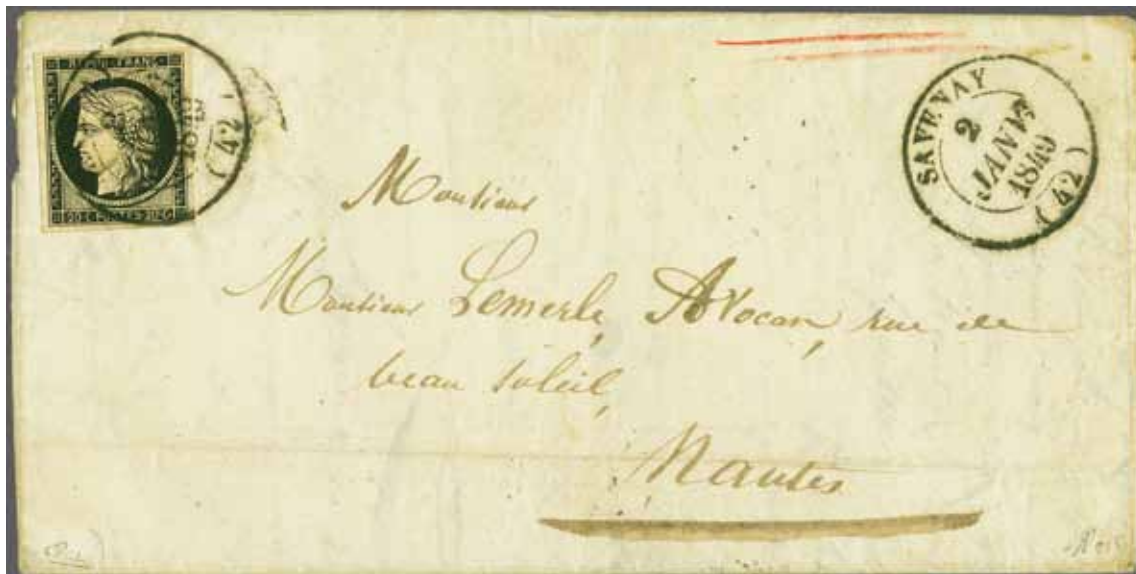 REPUB. FRANC.
20 C POSTES 20 C
1849
( 42 )
SAVENAY
2
JANV.
1849
( 42 )
Monsieur
Monsieur Lemerle, Avocat, rue de
beau soleil,
Nantes